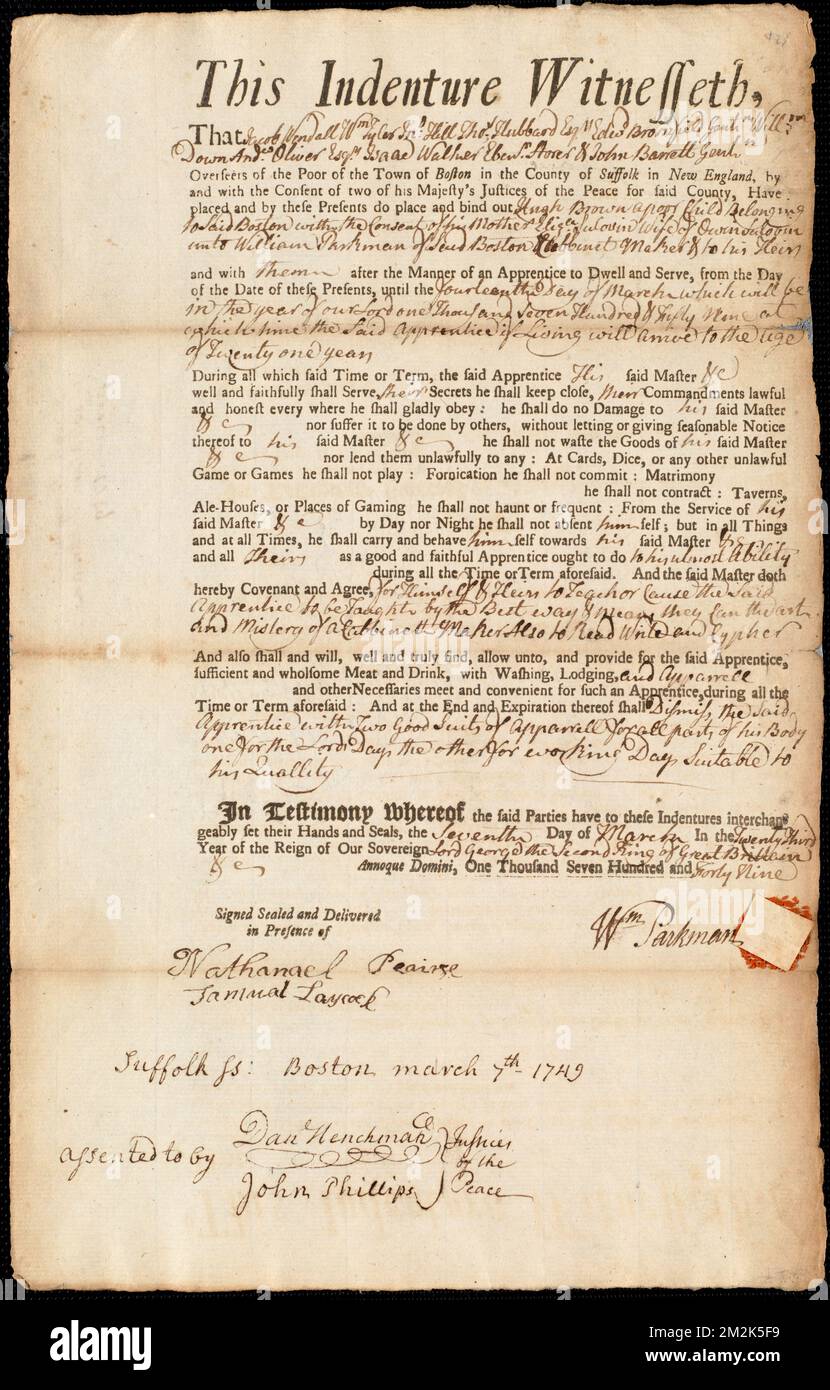 This Indenture Witnesseth,
That Jacob Wendall Wm Tyler Jno Hill Thos Hubbard Esqrs Edwd Bronfield Gentn Willm
Down Andw Oliver Esqrs Isaac Walker Ebenr Storer & John Barrett Gentn
Overseers of the Poor of the Town of Boston in the County of Suffolk in New England, by
and with the Consent of two of his Majesty's Justices of the Peace for said County, Have
placed and by these Presents do place and bind out Hugh Brown a poor Child Belonging
to Said Boston with the Consent of his Mother Eliza Wife of Owin
unto William Parkman of Said Boston Cabbinet Maker & to his Heirs
and with them after the Manner of an Apprentice to Dwell and Serve, from the Day
of the Date of these Presents, until the fourteenth Day of March which will be
in the year of our Lord one Thousand Seven Hundred & fifty Nine at
which time the Said Apprentice if Living will arrive to the age
of Twenty one years
During all which said Time or Term, the said Apprentice His said Master &c
well and faithfully shall Serve, their Secrets he shall keep close, their Commandments lawful
and honest every where he shall gladly obey : he shall do no Damage to his said Master
&c nor suffer it to be done by others, without letting or giving seasonable Notice
thereof to his said Master &c he shall not waste the Goods of his said Master
&c nor lend them unlawfully to any : At Cards, Dice, or any other unlawful
Game or Games he shall not play : Fornication he shall not commit : Matrimony
he shall not contract : Taverns,
Ale-Houses, or Places of Gaming he shall not haunt or frequent : From the Service of his
said Master &c by Day nor Night he shall not absent him self ; but in all Things
and at all Times, he shall carry and behave him self towards his said Master &c
and all Theirs as a good and faithful Apprentice ought to do to his utmost Ability
during all the Time or Term aforesaid. And the said Master doth
hereby Covenant and Agree, for Himself & Heirs to Teach or Cause the Said
Apprentice to be Taught by the Best way & means they Can the art
and Mistery of a Cabbinett Maker Also to Read Write and Cypher
And also shall and will, well and truly find, allow unto, and provide for the said Apprentice,
sufficient and wholsome Meat and Drink, with Washing, Lodging, and Apparrell
and other Necessaries meet and convenient for such an Apprentice, during all the
Time or Term aforesaid : And at the End and Expiration thereof shall Dismiss the Said
Apprentice with Two Good Suits of Apparrell for all parts of his Body
one for the Lords Days the other for working Days Suitable to
his Quallity
In Testimony whereof the said Parties have to these Indentures interchan
geably set their Hands and Seals, the Seventh Day of March In the Twenty Third
Year of the Reign of Our Sovereign Lord George the Second King of Great Brittain
&c Annoque Domini, One Thousand Seven Hundred and Forty Nine
Signed Sealed and Delivered
in Presence of
Wm Parkman
Nathanael Peairse
Samuel Laycock
Suffolk ss: Boston march 7th 1749
assented to by Danl Henchman Justices
of the
John Phillips Peace
alamy
Image ID: 2M2K5F9
www.alamy.com